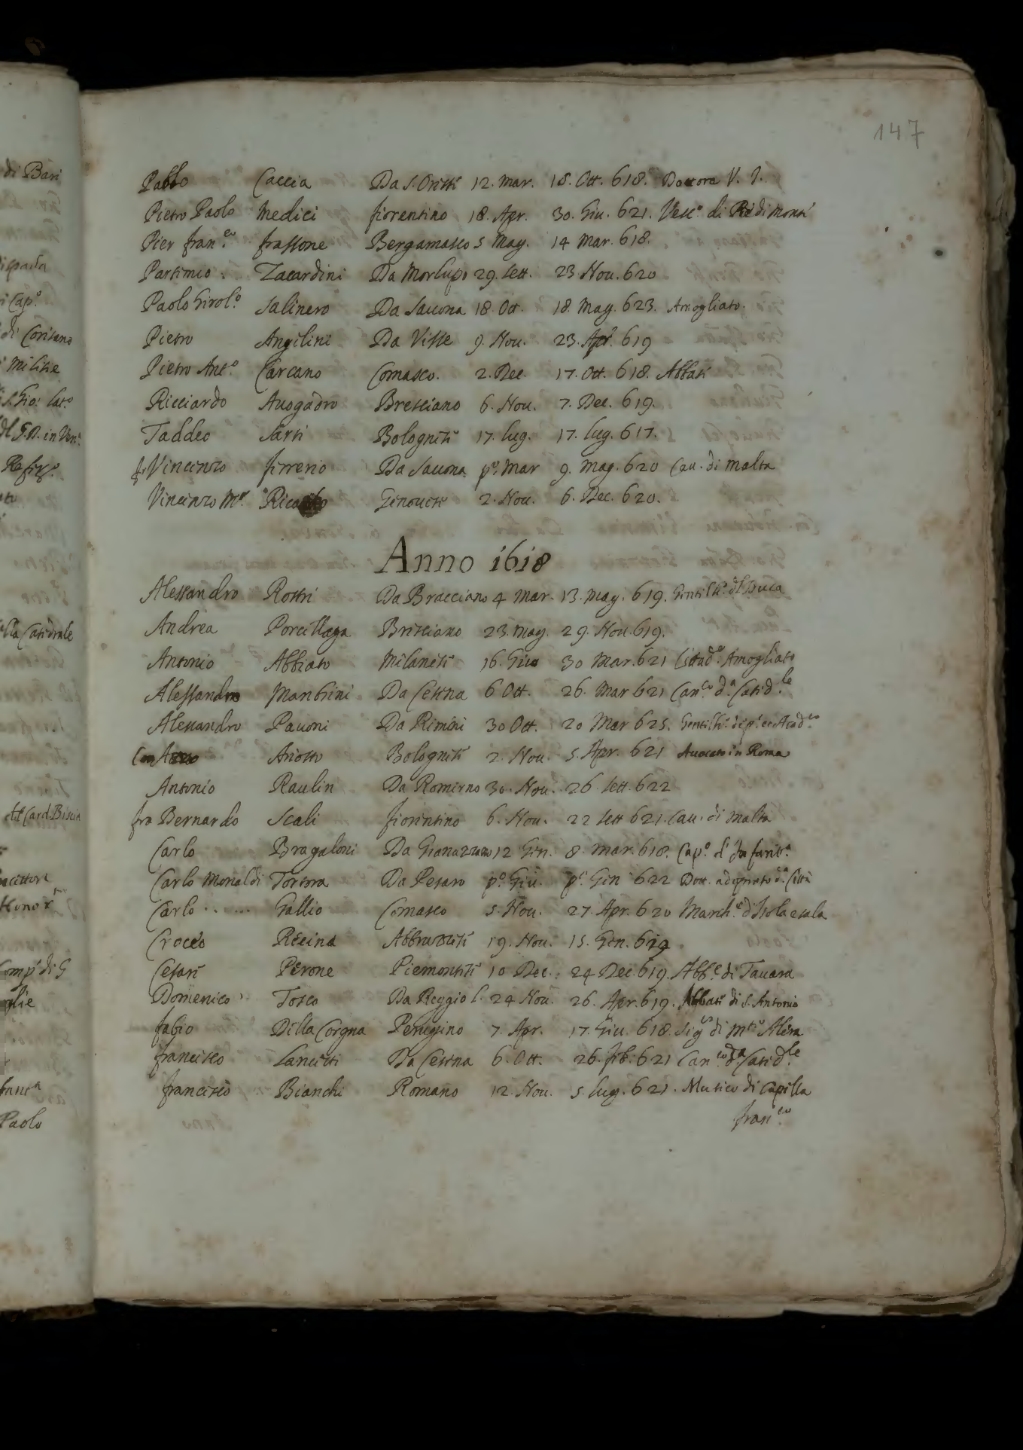 147
Paolo Caccia Da S. Oreste 12. Mar. 18. Ott. 618. Dottore V. I.
Pietro Paolo Medici fiorentino 18. Apr. 30. Giu. 621. Vesc.o di
Pier fran.co frassone Bergamasco 5 Mag. 14 Mar. 618.
Partenio Zacardini Da Morlupo 29. Sett. 23 Nou. 620
Paolo Girol.o Salinero Da Sauona 18. Ott. 18. Mag. 623. Amogliato.
Pietro Angilini Da Visse 9. Nou. 23. Apr. 619
Pietro Ant.o Carcano Comasco. 2. Dec 17. Ott. 618. Abbate
Ricciardo Auogadro Bresciano 6. Nou. 7. Dec. 619.
Taddeo Sarti Bolognese 17. lug. 17. lug. 617.
fr Vincenzo firreno Da Sauona p.o Mar 9. Mag. 620 Cau. di malta
Vincenzo M.a Genouese 2. Nou. 6. Dec. 620.
Anno 1618
Alessandro Rostri Da Bracciano 4 Mar. 13. Mag. 619. Gentilh.o d'Duca
Andrea Porcellaga Bresciano 23. Mag. 29. Nou. 619.
Antonio Abbiato Milanese 16. Giu 30 Mar. 621 Cittad.o Amogliato
Alessandro Mantini Da Cesena 6 Ott. 26. Mar 621 Can.co d.a Catid.le
Alessandro Pauoni Da Rimini 30 Ott. 20 Mar 625.
Con Azzo Ariosto Bolognese 2. Nou. 5. Apr. 621 Auocato in Roma
Antonio Raulin Da Romirno 30. Nou. 26 Sett 622
fra Bernardo Scali fiorentino 6. Nou. 22 Sett 621. Cau. di Malta
Carlo Bragaloni Da 12 Gen. 8. Mar. 618. Cap.o d' Infanter.a
Carlo Monaldi Tortora Da Pesaro p.o Giu. p.o Gen 622 Dott.
Carlo . . . . . . Gallio Comasco 5. Nou. 27 Apr. 620 March.e d'Isola e sala
Croceo Resina Abbruzzese 19. Nou. 15. Gen. 619
Cesare Perone Piemontese 10 Dec. 24 Dec 619. Abb.e di Tauara
Domenico Tosco Da Reggio l. 24 Nou. 26. Apr. 619. Abbate di S. Antonio
fabio Della Corgna Perugino 7 Apr. 17 Giu. 618.
francesco Lancetti Da Cesena 6. Ott. 26. feb. 621 Can.co d.a Catid.le
francesco Bianchi Romano 12. Nou. 5. lug. 621. Musico di Capella
fran.co
di Bari
di Coritano
Milizie
Card. Biscia
Comp.a di G
Paolo